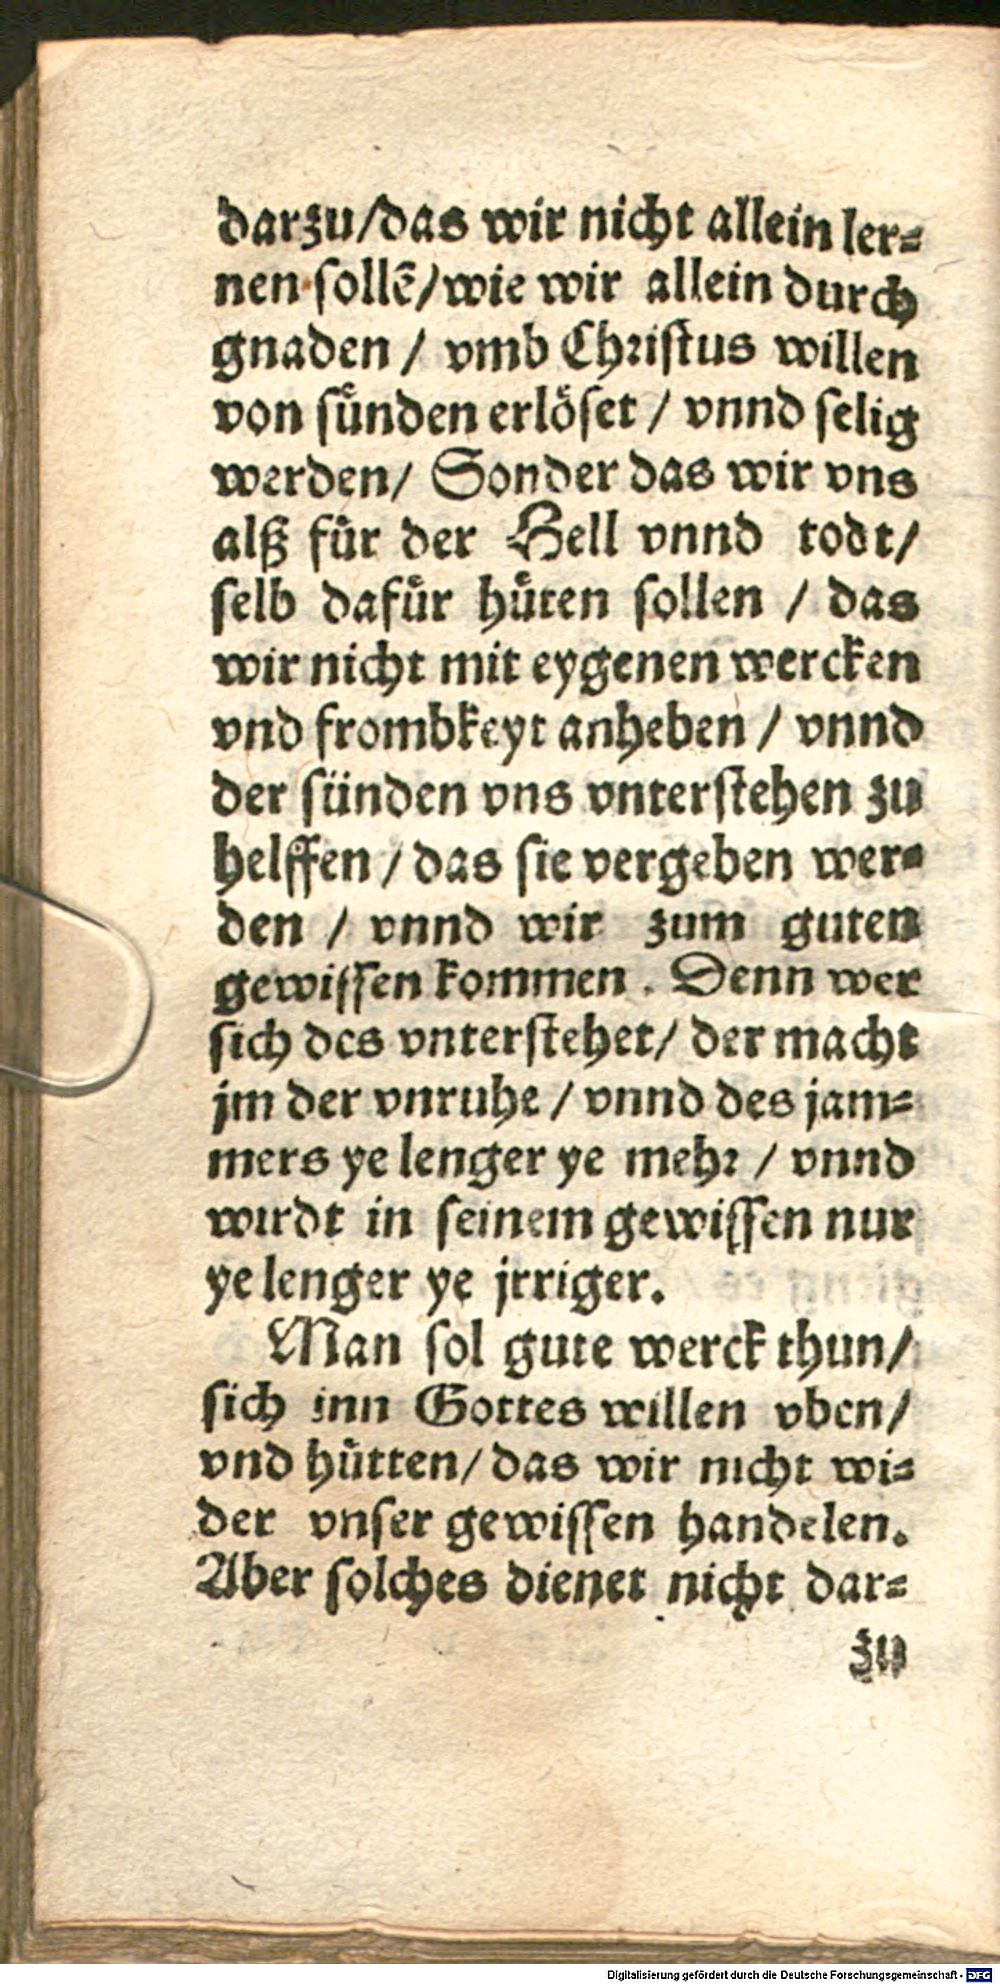 darzu/das wir nicht allein ler⸗
nen ſollẽ/wie wir allein durch
gnaden / vmb Chꝛiſtus willen
von ſuͤnden erloͤſet / vnnd ſelig
werden/ Sonder das wir vns
alß fuͤr der Hell vnnd todt/
ſelb dafuͤr huͤten ſollen / das
wir nicht mit eygenen wercken
vnd frombkeyt anheben / vnnd
der ſünden vns vnterſtehen zu
helffen / das ſie vergeben wer⸗
den / vnnd wir zum guten
gewiſſen kommen . Denn wer
ſich des vnterſtehet/ der macht
jm der vnruhe / vnnd des jam⸗
mers ye lenger ye mehꝛ / vnnd
wirdt in ſeinem gewiſſen nur
ye lenger ye jrriger.
Man ſol gute werck thun/
ſich inn Gottes willen vben/
vnd huͤtten/ das wir nicht wi⸗
der vnſer gewiſſen handelen.
Aber ſolches dienet nicht dar⸗
zu
Digitalisierung gefördert durch die Deutsche Forschungsgemeinschaft - DFG